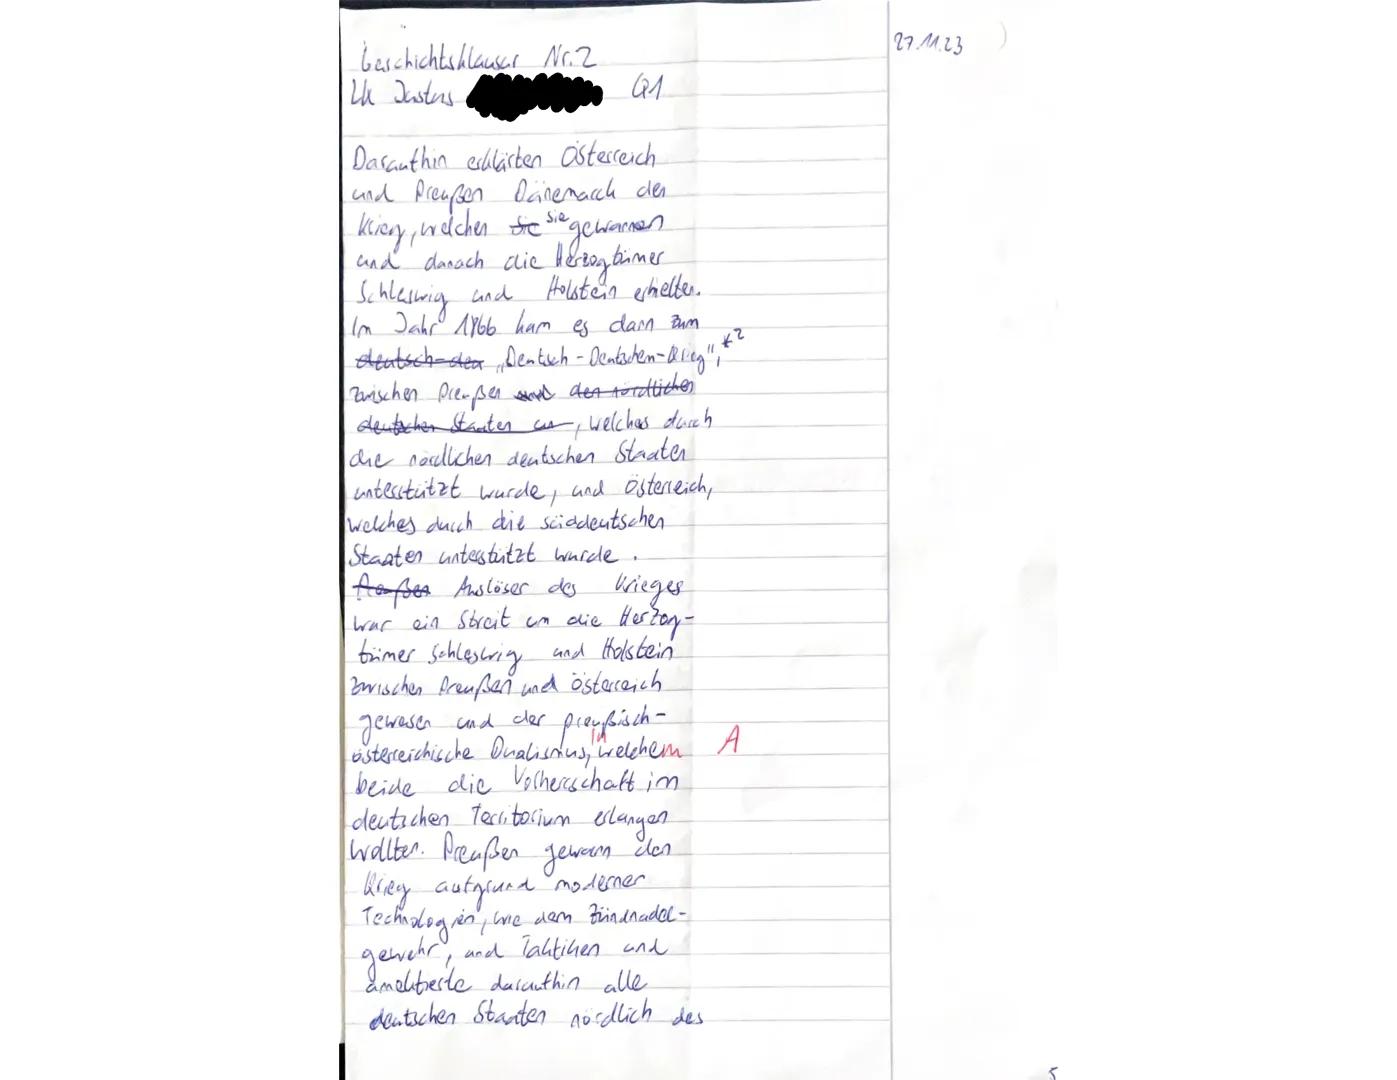 Geschichtsklausur Nr. 2
27.11.23
LK Q1
Daraufhin erklärten Österreich
und Preußen Dänemarck den
Krieg, welchen sie sie gewannen
und danach die Herzogtümer
Schleswig und Holstein erhielten.
Im Jahr 1866 kam es dann zum
deutsch-deu „Deutsch-Deutschen-Krieg", *2
zwischen Preußen und den nördlichen
deutschen Staaten un, welches durch
die nördlichen deutschen Staaten
unterstützt wurde, und Österreich,
welches durch die süddeutschen
Staaten unterstützt wurde.
Preußen Auslöser des Krieges
war ein Streit um die Herzog-
tümer Schleswig und Holstein
zwischen Preußen und Österreich
gewesen und der preußisch-
österreichische Dualismus, in welchem A
beide die Vorherrschaft im
deutschen Territorium erlangen
wollten. Preußen gewann den
Krieg aufgrund moderner
Technologien, wie dem Zündnadel-
gewehr, und Taktiken und
anektierte daraufhin alle
deutschen Staaten nördlich des
5